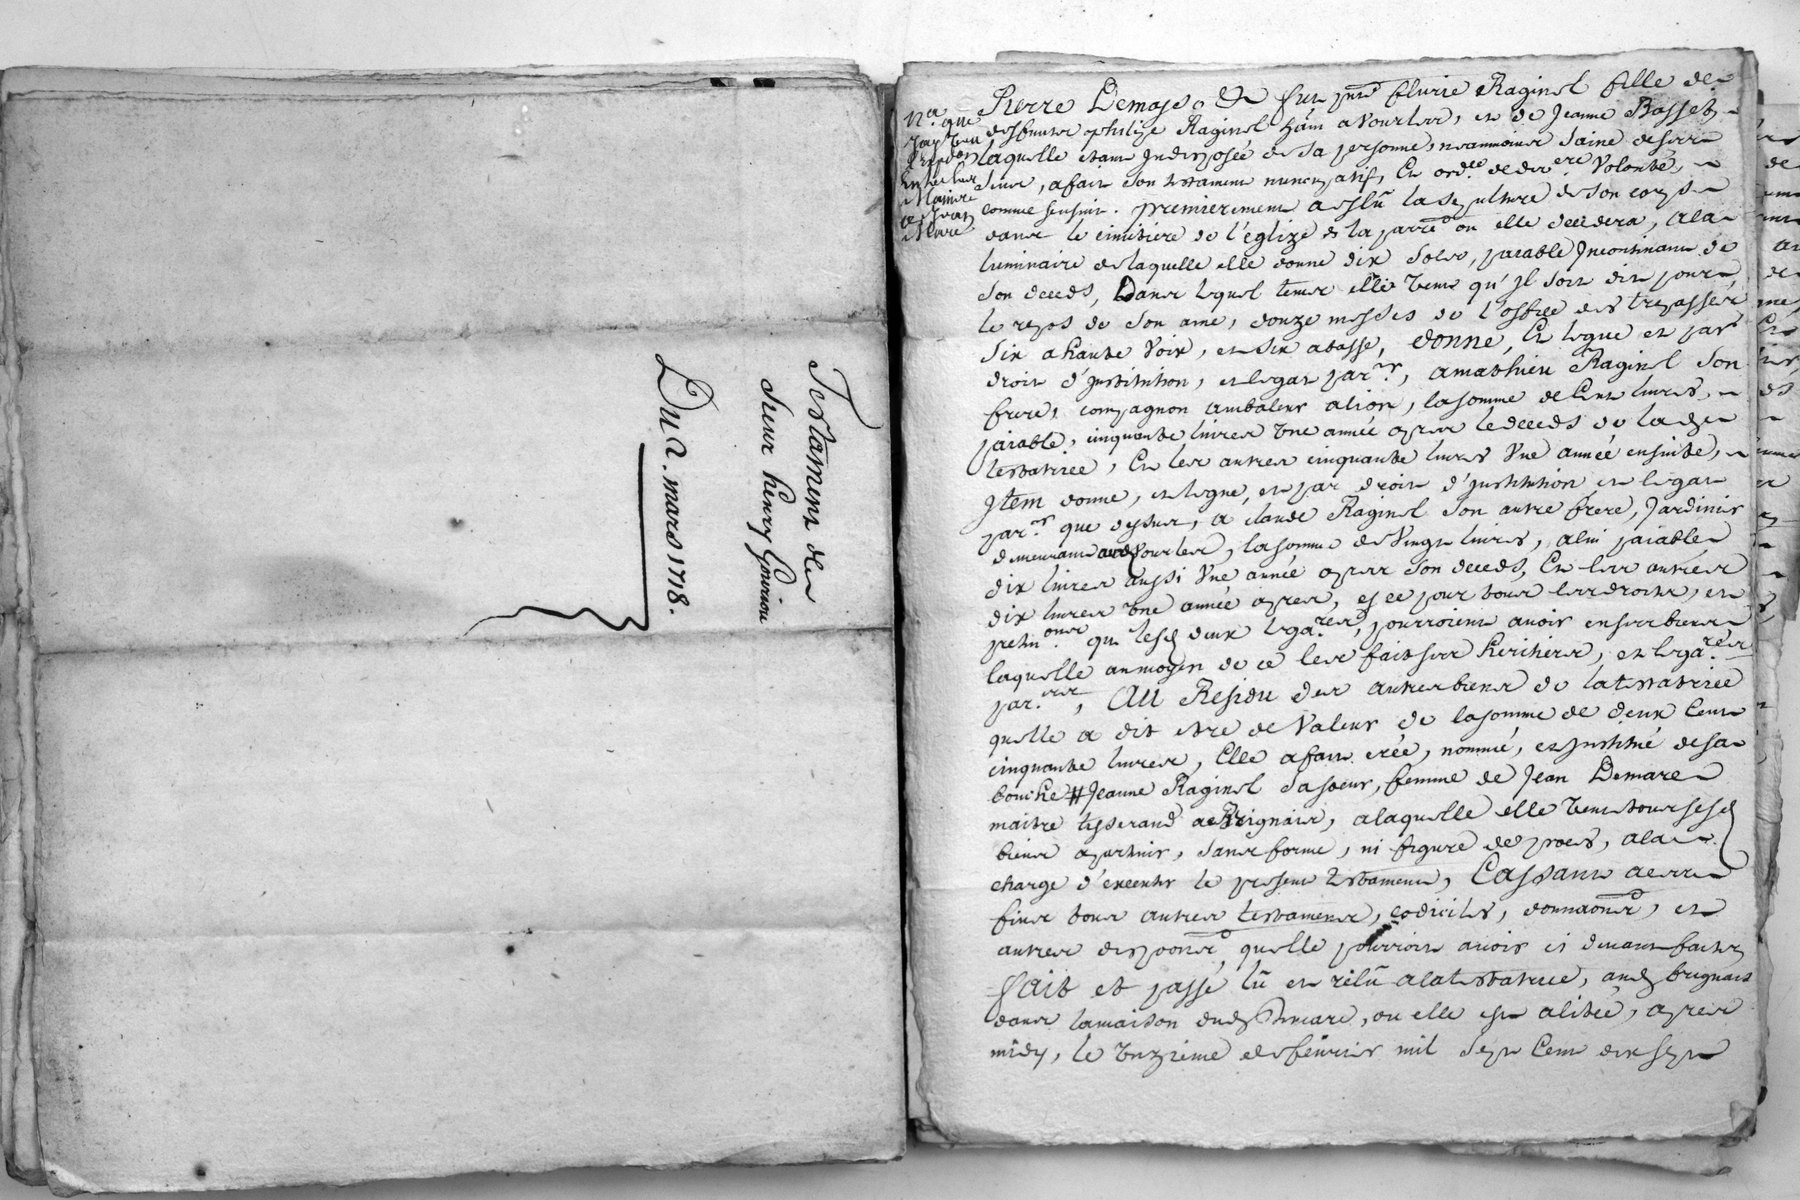 Testament de
Sieur henry
Du 2. mars 1718.
Pierre Demase. & fut pnte fleurie Raginel fille de
deffunts philipe Raginel hâin a Vourles, et de Jeanne Basset
laquelle étant Indisposée de sa personne, neanmoins saine de ses
sens, a fait son testament nuncupatif, Et ordce de derere Volonté,
comme sensuit. premierement a eslû la sepulture de son corps
dans le cimitiere de l'eglize de la parre ou elle decedera, a la
luminaire de laquelle elle donne dix sols, paiable Incontinant
son deceds, Dans lequel tems elle veut qu'il soit dit pour
le repos de son ame, douze messes de l'office des trepassez
six a haute Voix, et six a basse, donne, Et legue et par
droit d'institution, et legat parer, a mathieu Raginel son
frere, compagnon anbaleur a lion, la somme de Cent livres,
paiable, cinquante livres une année apres le deceds de lade
testatrice, Et les autres cinquante livres Vne année ensuite,
Item donne, et legue, et par droit d'institution et legat
parer que dessus, a claude Raginel son autre frere, Jardinier
demeurant Vourles, la somme de Vingt livres, a lui paiable
dix livres aussi Vne année apres son deceds, Et les autres
dix livres Vne année apres, et ce pour tous les droits, et
petnons que lesd deux legares, pourroient avoir en ses biens
laquelle au moyen de ce les fait ses heritiers, et legares
parers, AU Residu des autres biens de la testatrice
quelle a dit etre de Valeur de la somme de deux Cent
cinquante livres, Elle a fait, crée, nommé, et institué de sa
bouche # Jeanne Raginel sa soeur, femme de Jean Demare
maitre tisserand a Brignais, a laquelle elle veut tous sesd
biens apartenir, sans forme, ni figure de proces, a la
charge d'executer le present testament, Cassant
tous autres testamens, codiciles, donnaons, et
autres dispoons, quelle pourroit avoir ci devant faits
fait et passé lû et relû a la testatrice, aud brignais
dans la maison dud Demare, ou elle est alitée, apres
midy, le Onzieme de feuvrier mil sept Cent dix sept